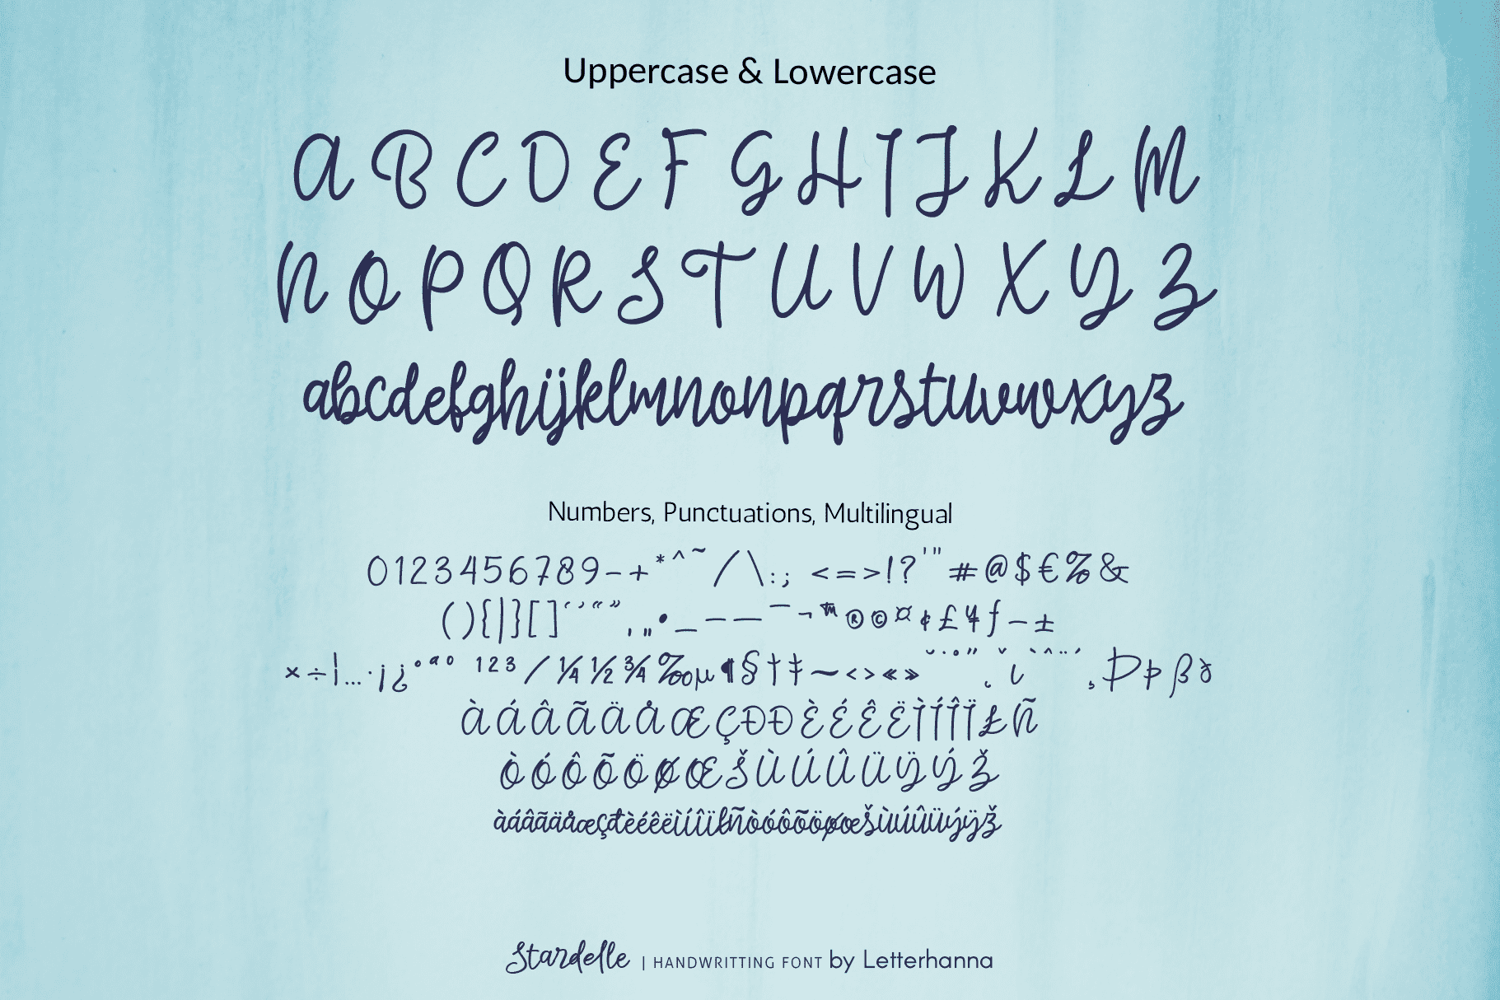 Uppercase & Lowercase
A B C D E F G H I J K L M
N O P Q R S T U V W X Y Z
abcdefghijklmnonpqrstuvwxyz
Numbers, Punctuations, Multilingual
0123456789-+*^~/\:; <=>!?'"#@$€%&
(){|}[]‘’“”‚„•_–—¯¬™®©¤¢£¥ƒ–±
×÷¦…·¡¿°ªº ¹²³⁄¼½¾‰µ¶§†‡~‹›«»˘˙˚˝˛ˇı`ˆ¨´¸Þþßð
ÀÁÂÃÄÅÆÇÐĐÈÉÊËÌÍÎÏŁÑ
ÒÓÔÕÖØŒŠÙÚÛÜŸÝŽ
àáâãäåæçđèéêëìíîïłñòóôõöøœšùúûüýÿž
Stardelle | HANDWRITTING FONT by Letterhanna